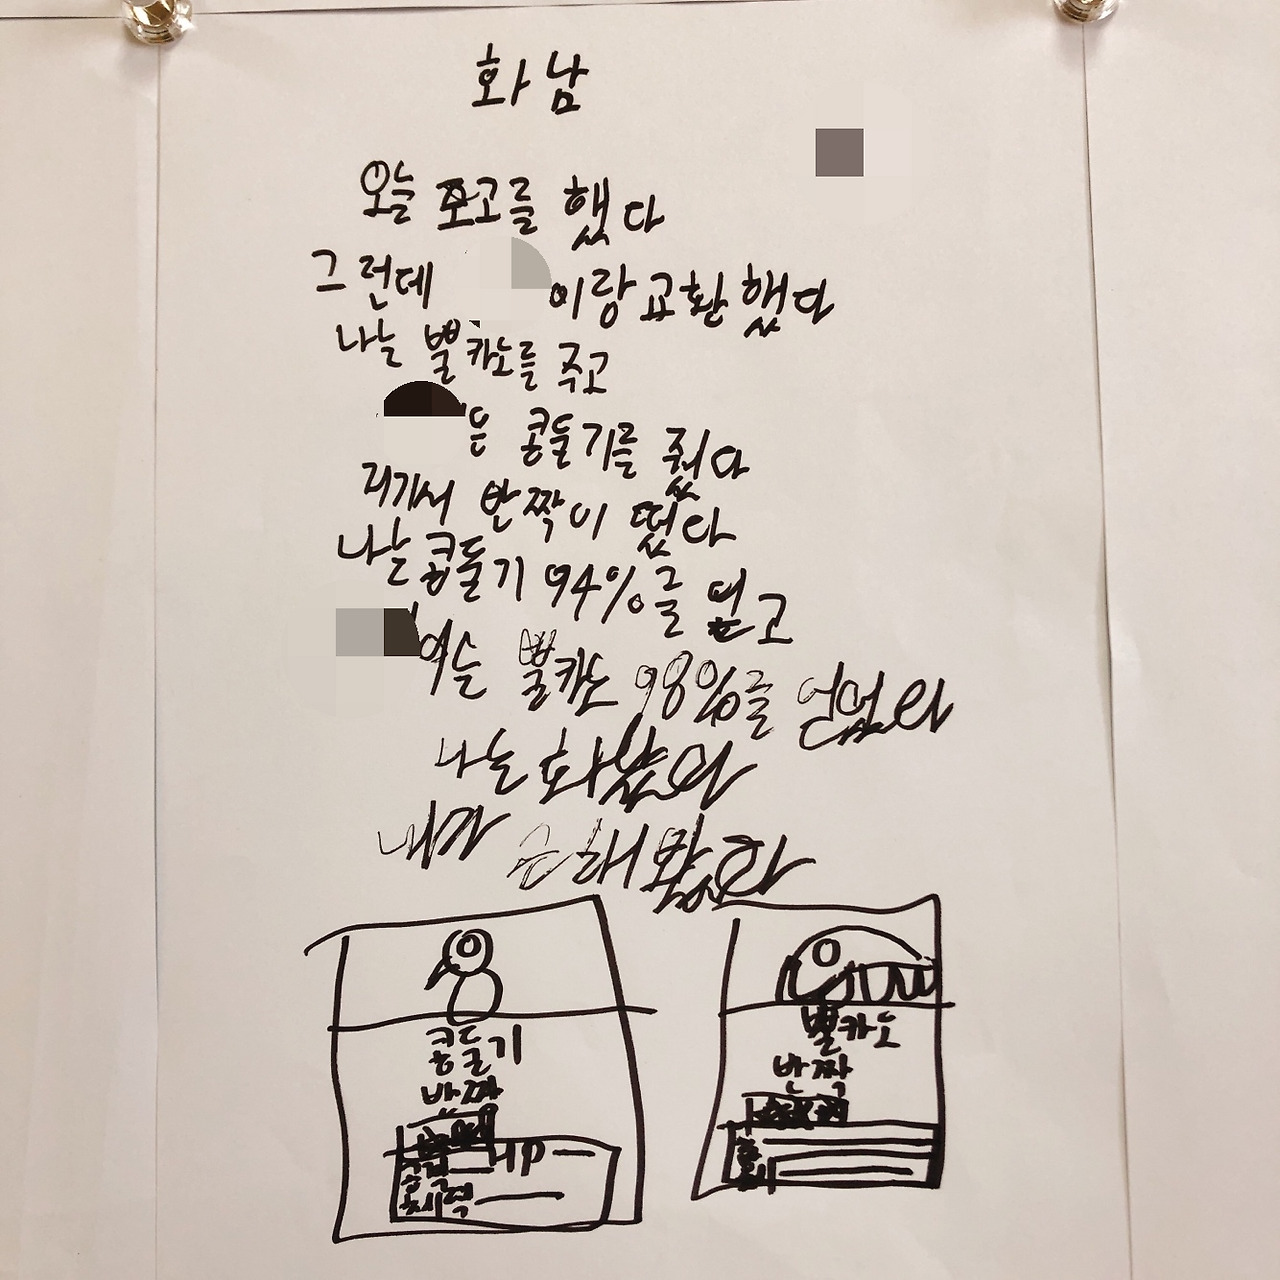 화남
오늘 포고를 했다
그런데 이랑 교환했다
나는 뿔카노를 주고
은 콩둘기를 줬다
거기서 반짝이 떴다
나는 콩둘기 94%를 얻고
여는 뿔카노 98%를 얻었다
나는 화났다
내가 손해봤다
콩둘기
반짝
HP
뿔카노
반짝